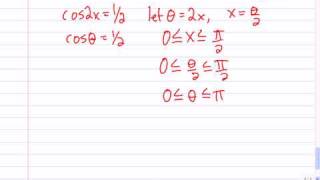 cos2x=1/2 let θ=2x, x=θ/2
cosθ=1/2 0≤x≤π/2
0≤θ/2≤π/2
0≤θ≤π